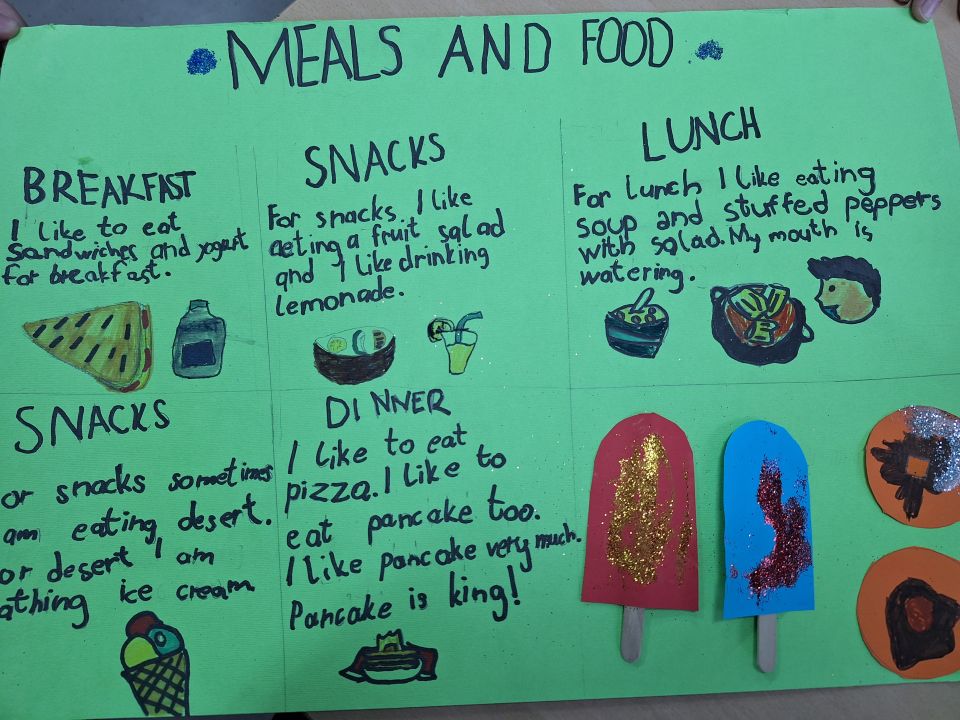 MEALS AND FOOD
BREAKFAST
I like to eat
sandwiches and yogurt
for breakfast.
SNACKS
For snacks I like
aeting a fruit salad
and I like drinking
lemonade.
LUNCH
For lunch I like eating
soup and stuffed peppers
with salad. My mouth is
watering.
SNACKS
or snacks sometimes
am eating desert.
or desert I am
athing ice cream
DINNER
I like to eat
pizza. I like to
eat pancake too.
I like pancake very much.
Pancake is king!